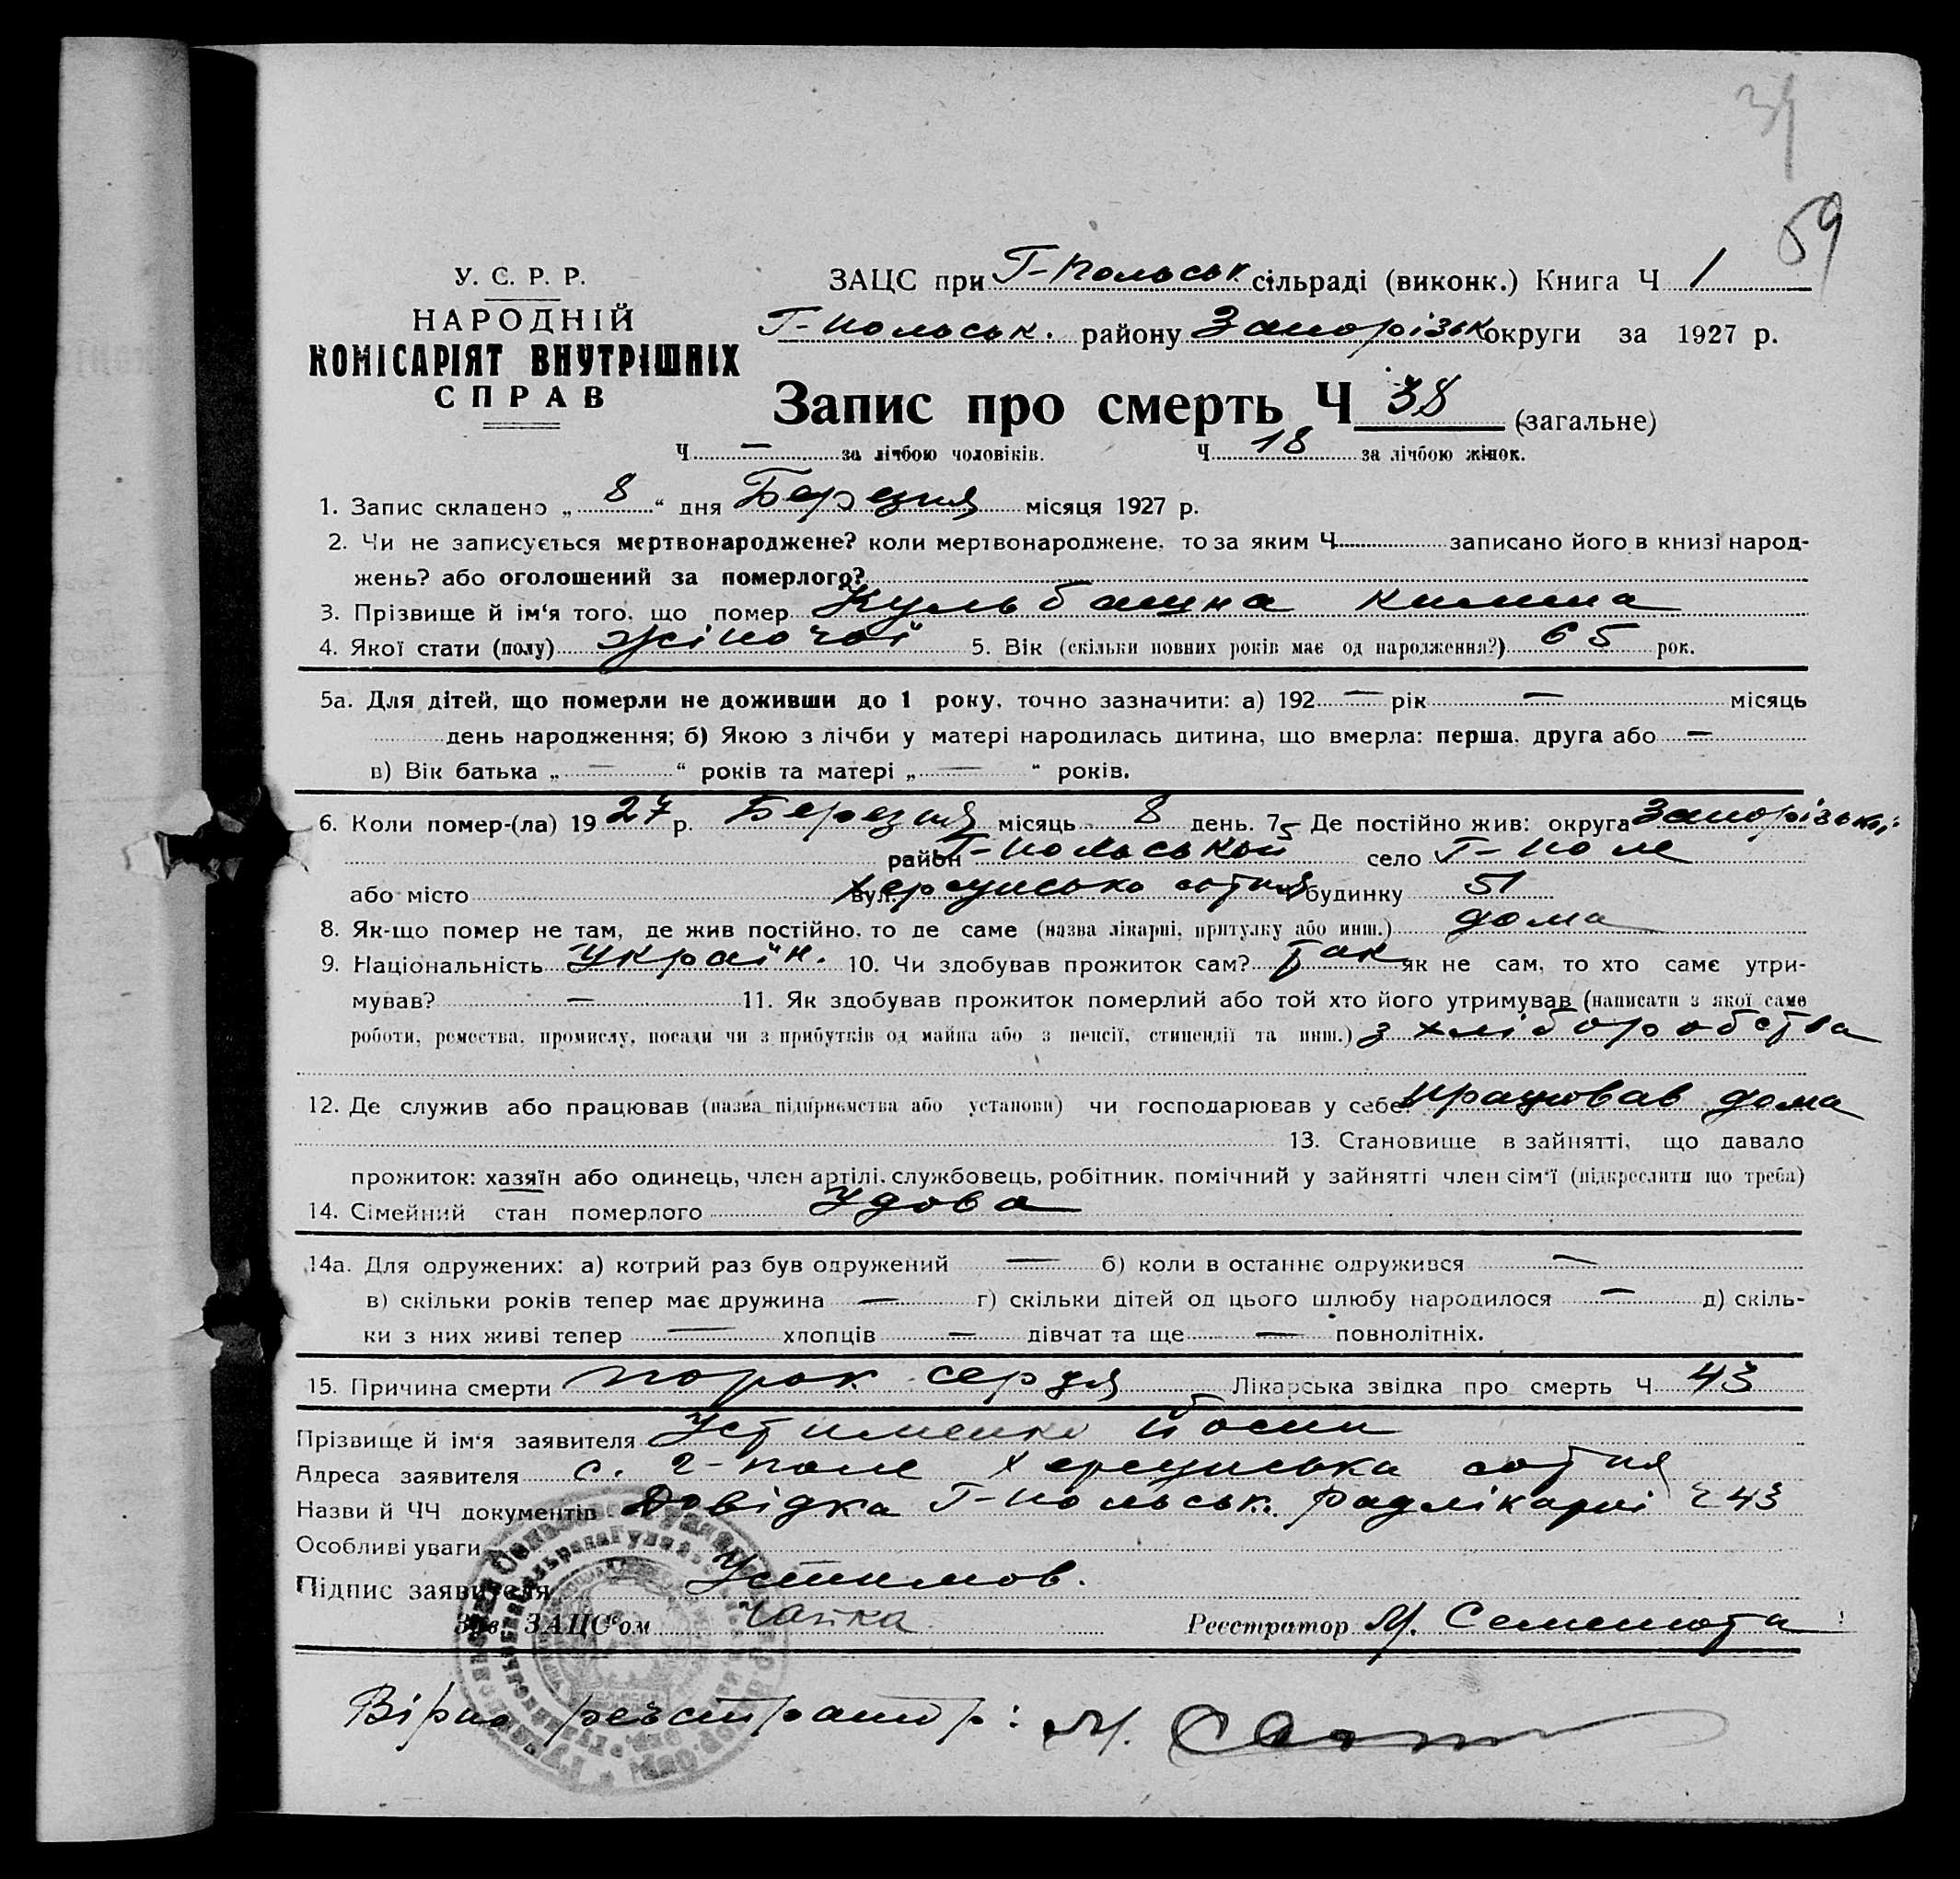 34
59
У. С. Р. Р.
НАРОДНІЙ
КОМІСАРІЯТ ВНУТРІШНІХ
СПРАВ
ЗАЦС при Г-Польськ. сільраді (виконк.) Книга Ч 1
Г-Польськ. району Запорізьк округи за 1927 р.
Запис про смерть Ч 38 (загальне)
Ч — за лічбою чоловіків. Ч 18 за лічбою жінок.
1. Запис складено „ 8 “ дня Березня місяця 1927 р.
2. Чи не записується мертвонароджене? коли мертвонароджене, то за яким Ч записано його в книзі народ-
жень? або оголошений за померлого?
3. Прізвище й ім'я того, що помер Кульбашна Килина
4. Якої стати (полу) жіночої 5. Вік (скільки повних років має од народження?) 65 рок.
5а. Для дітей, що померли не доживши до 1 року, точно зазначити: а) 192 — рік — місяць
день народження; б) Якою з лічби у матері народилась дитина, що вмерла: перша, друга або —
в) Вік батька „ — “ років та матері „ — “ років.
6. Коли помер-(ла) 19 27 р. Березня місяць 8 день. 7. Де постійно жив: округа Запорізької
район Г-Польський село Г-Поле
або місто вул. Херсунсько сотня будинку 51
8. Як-що помер не там, де жив постійно, то де саме (назва лікарні, притулку або инш.) дома
9. Національність Україн. 10. Чи здобував прожиток сам? Так як не сам, то хто саме утри-
мував? — 11. Як здобував прожиток померлий або той хто його утримував (написати з якої саме
роботи, ремества, промислу, посади чи з прибутків од майна або з пенсії, стипендії та инш.) з хліборобства
12. Де служив або працював (назва підприємства або установи) чи господарював у себе працював дома
13. Становище в зайнятті, що давало
прожиток: хазяїн або одинець, член артілі, службовець, робітник, помічний у зайнятті член сім'ї (підкреслити що треба)
14. Сімейний стан померлого Удова
14а. Для одружених: а) котрий раз був одружений — б) коли в останнє одружився —
в) скільки років тепер має дружина — г) скільки дітей од цього шлюбу народилося — д) скіль-
ки з них живі тепер — хлопців — дівчат та ще — повнолітніх.
15. Причина смерти порок серця Лікарська звідка про смерть Ч 43
Прізвище й ім'я заявителя Устименко Йосип
Адреса заявителя с. Г-поле Херсунська сотня
Назви й ЧЧ документів Довідка Г-Польськ. Радлікарні ч 43
Особливі уваги
Підпис заявителя Устимов.
Зав. ЗАЦС'ом Чапка Реєстратор М. Семенюта
Вірно реєстратор: М.